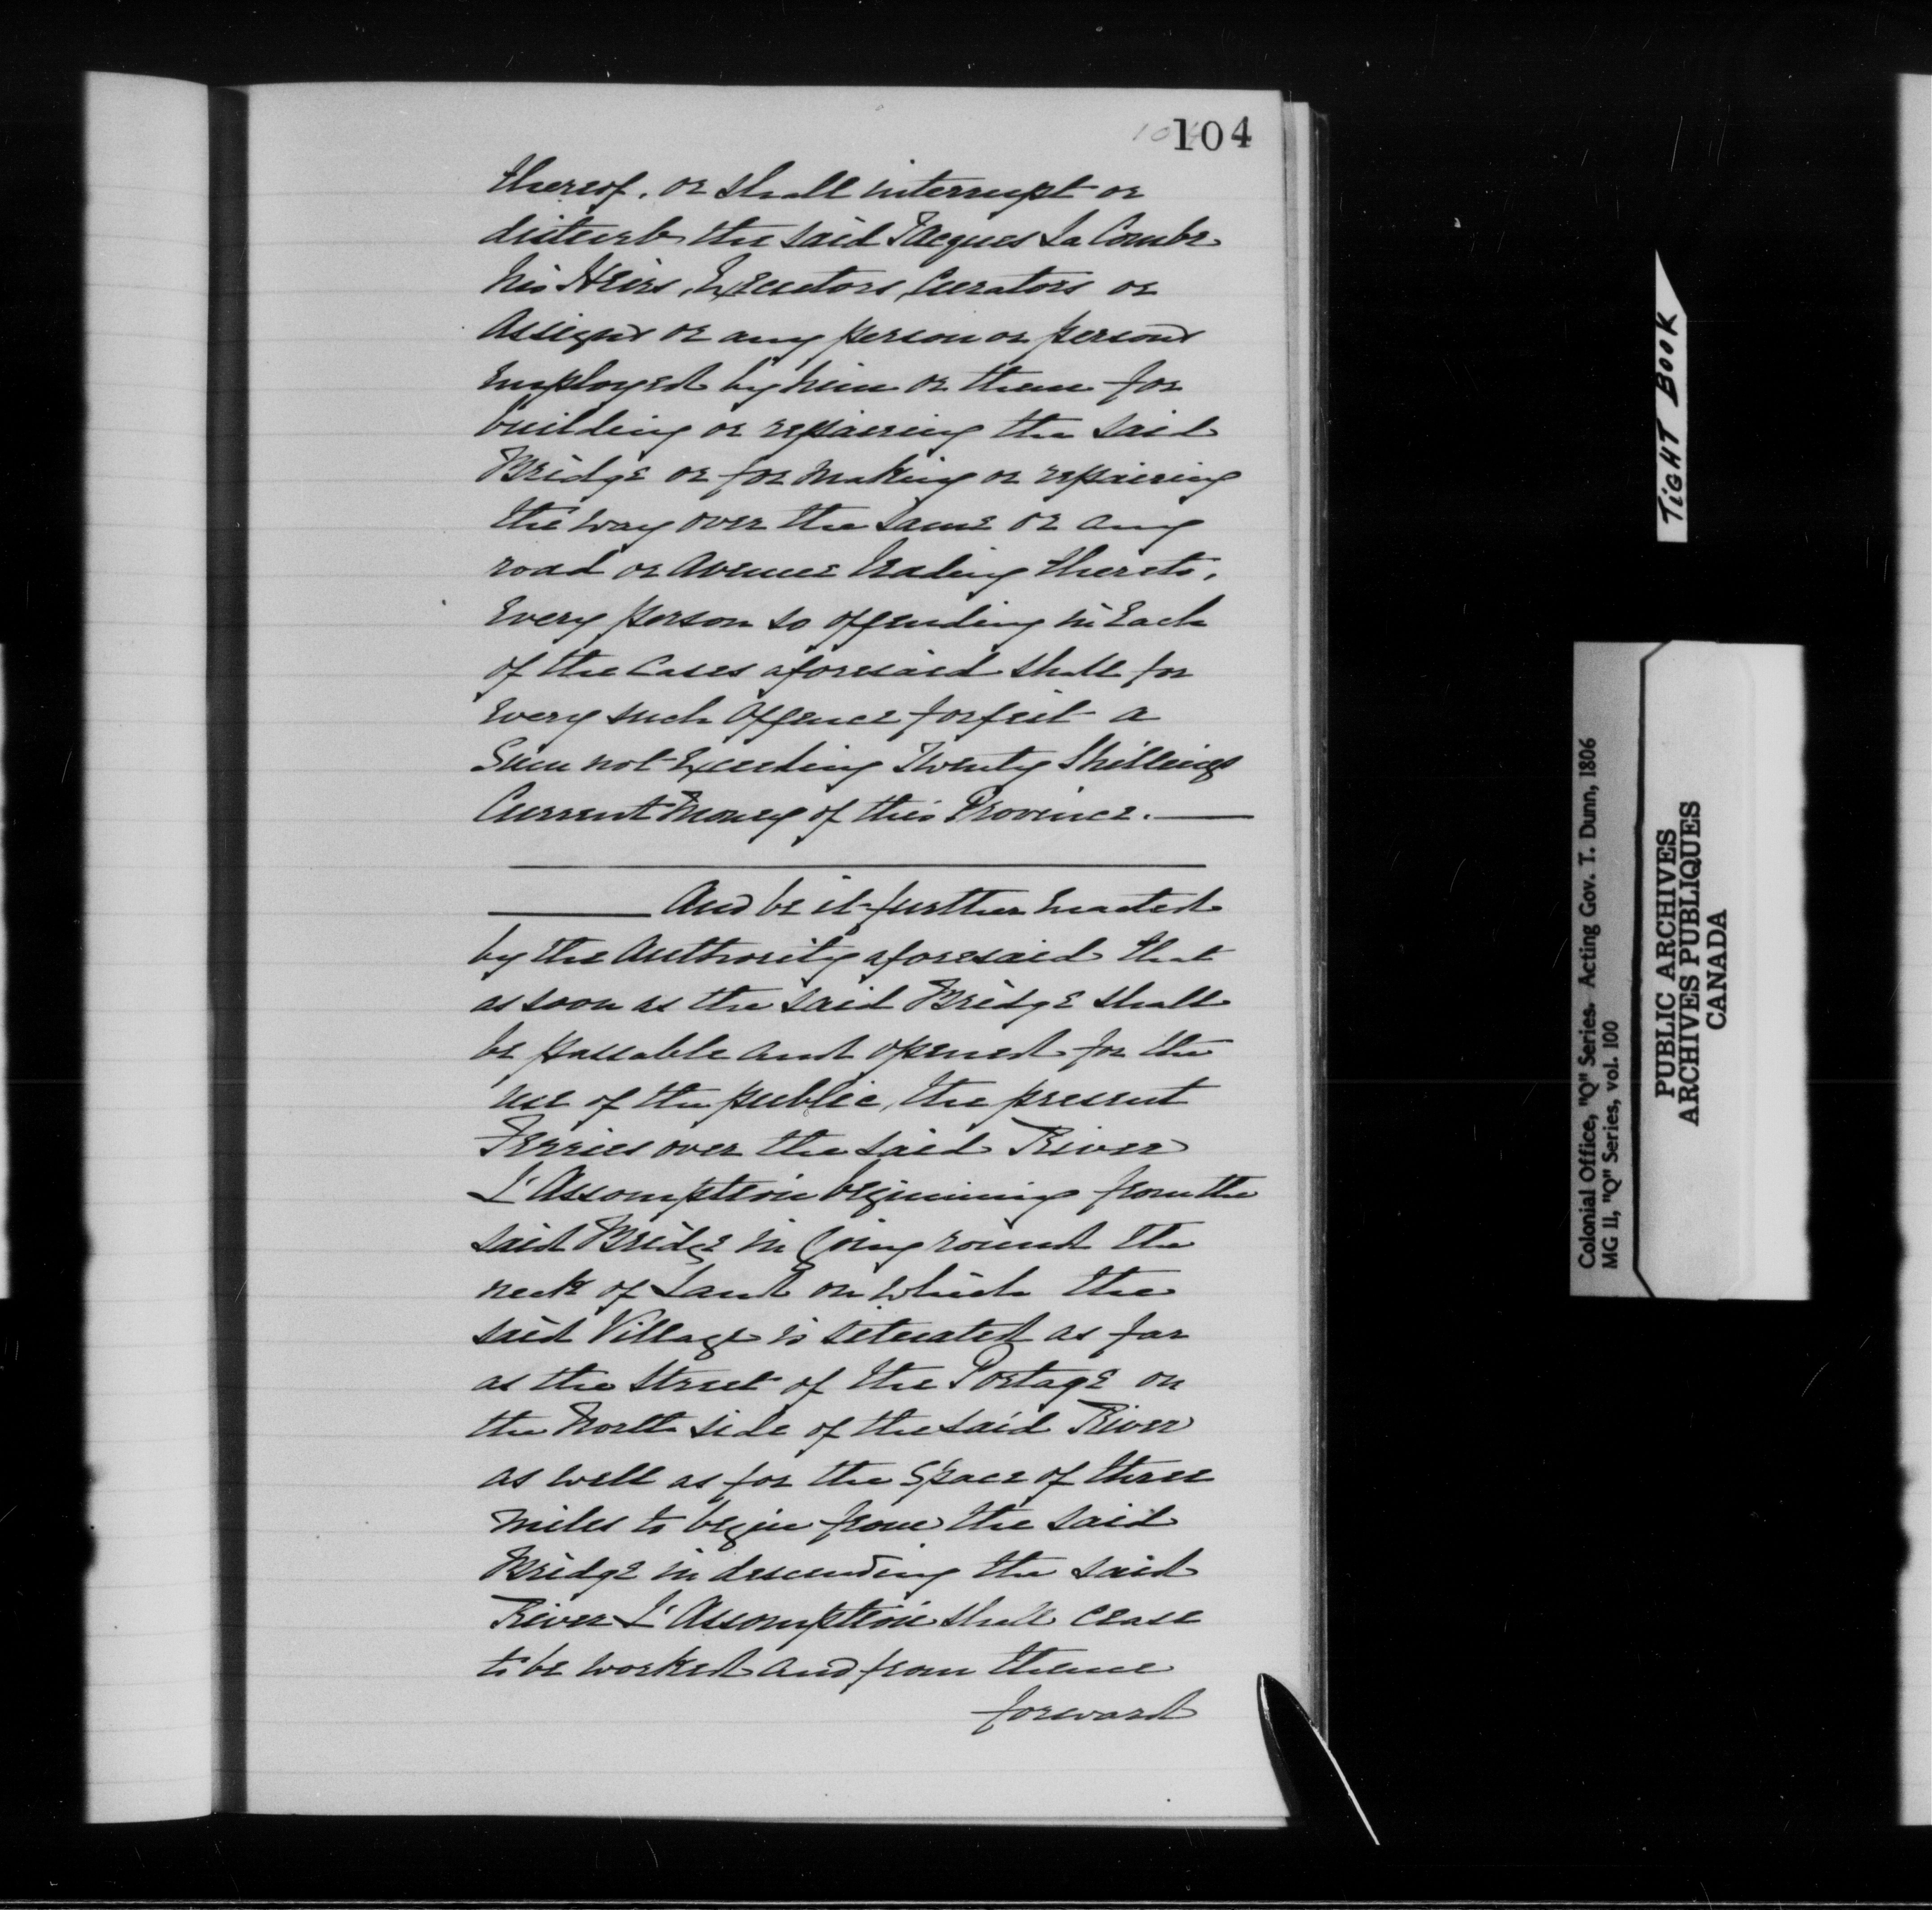 104
thereof, or shall interrupt or
disturb the said Jacques La Combe
his Heirs, Executors, Curators or
Assigns or any person or persons
employed by him or them for
building or repairing the said
Bridge or for making or repairing
the way over the same or any
road or avenue leading thereto,
Every person so offending in Each
of the Cases aforesaid shall for
Every such Offence forfeit a
Sum not Exceeding Twenty Shillings
Current Money of this Province.
And be it further Enacted
by the Authority aforesaid that
as soon as the said Bridge shall
be passable and opened for the
use of the public, the present
Ferries over the said River
L'Assomption beginning from the
said Bridge in going round the
neck of Land on which the
said Village is situated as far
as the Street of the Portage on
the North side of the said River
as well as for the Space of three
miles to begin from the said
Bridge in descending the said
River L'Assomption shall Cease
to be worked and from thence
forward
TIGHT BOOK
Colonial Office, "Q" Series. Acting Gov. T. Dunn, 1806
MG 11, "Q" Series, vol. 100
PUBLIC ARCHIVES
ARCHIVES PUBLIQUES
CANADA